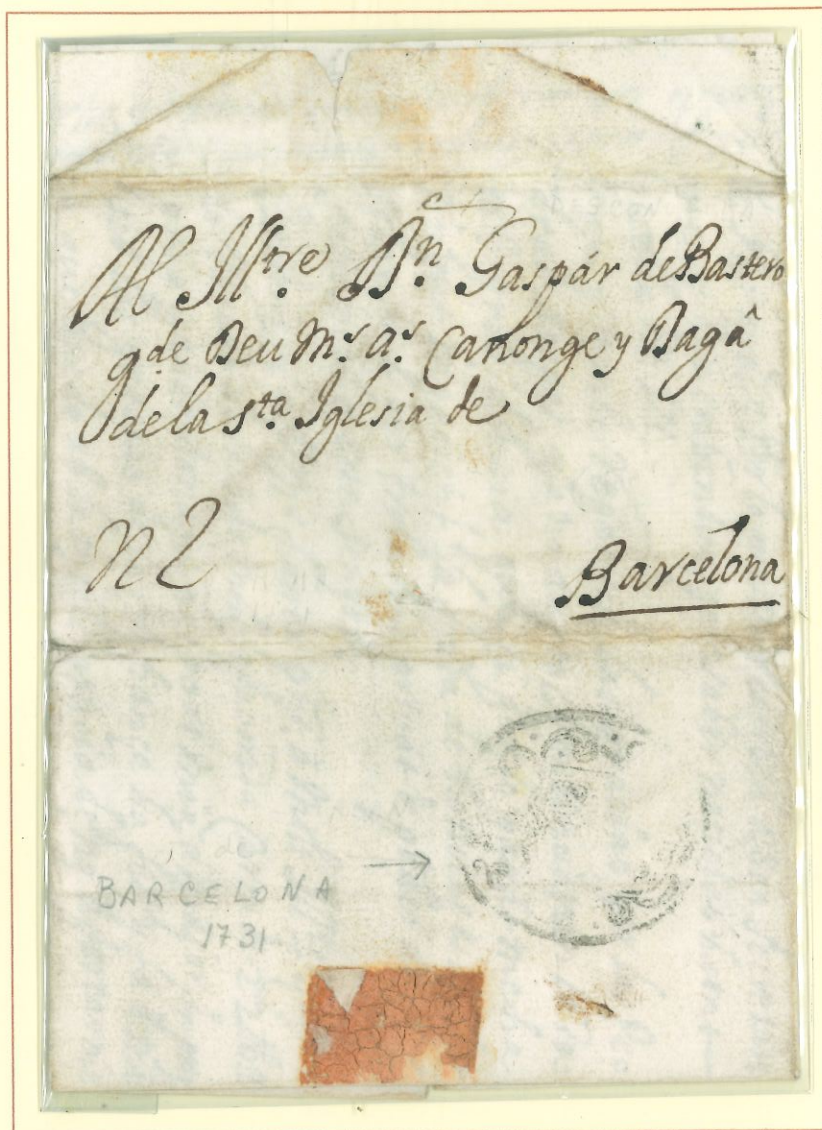 Al Illtre. Dn. Gaspár de Bastero
q de Deu Ms. as. Canonge y
de la Sta. Iglesia de
n 2
Barcelona
BARCELONA
1731